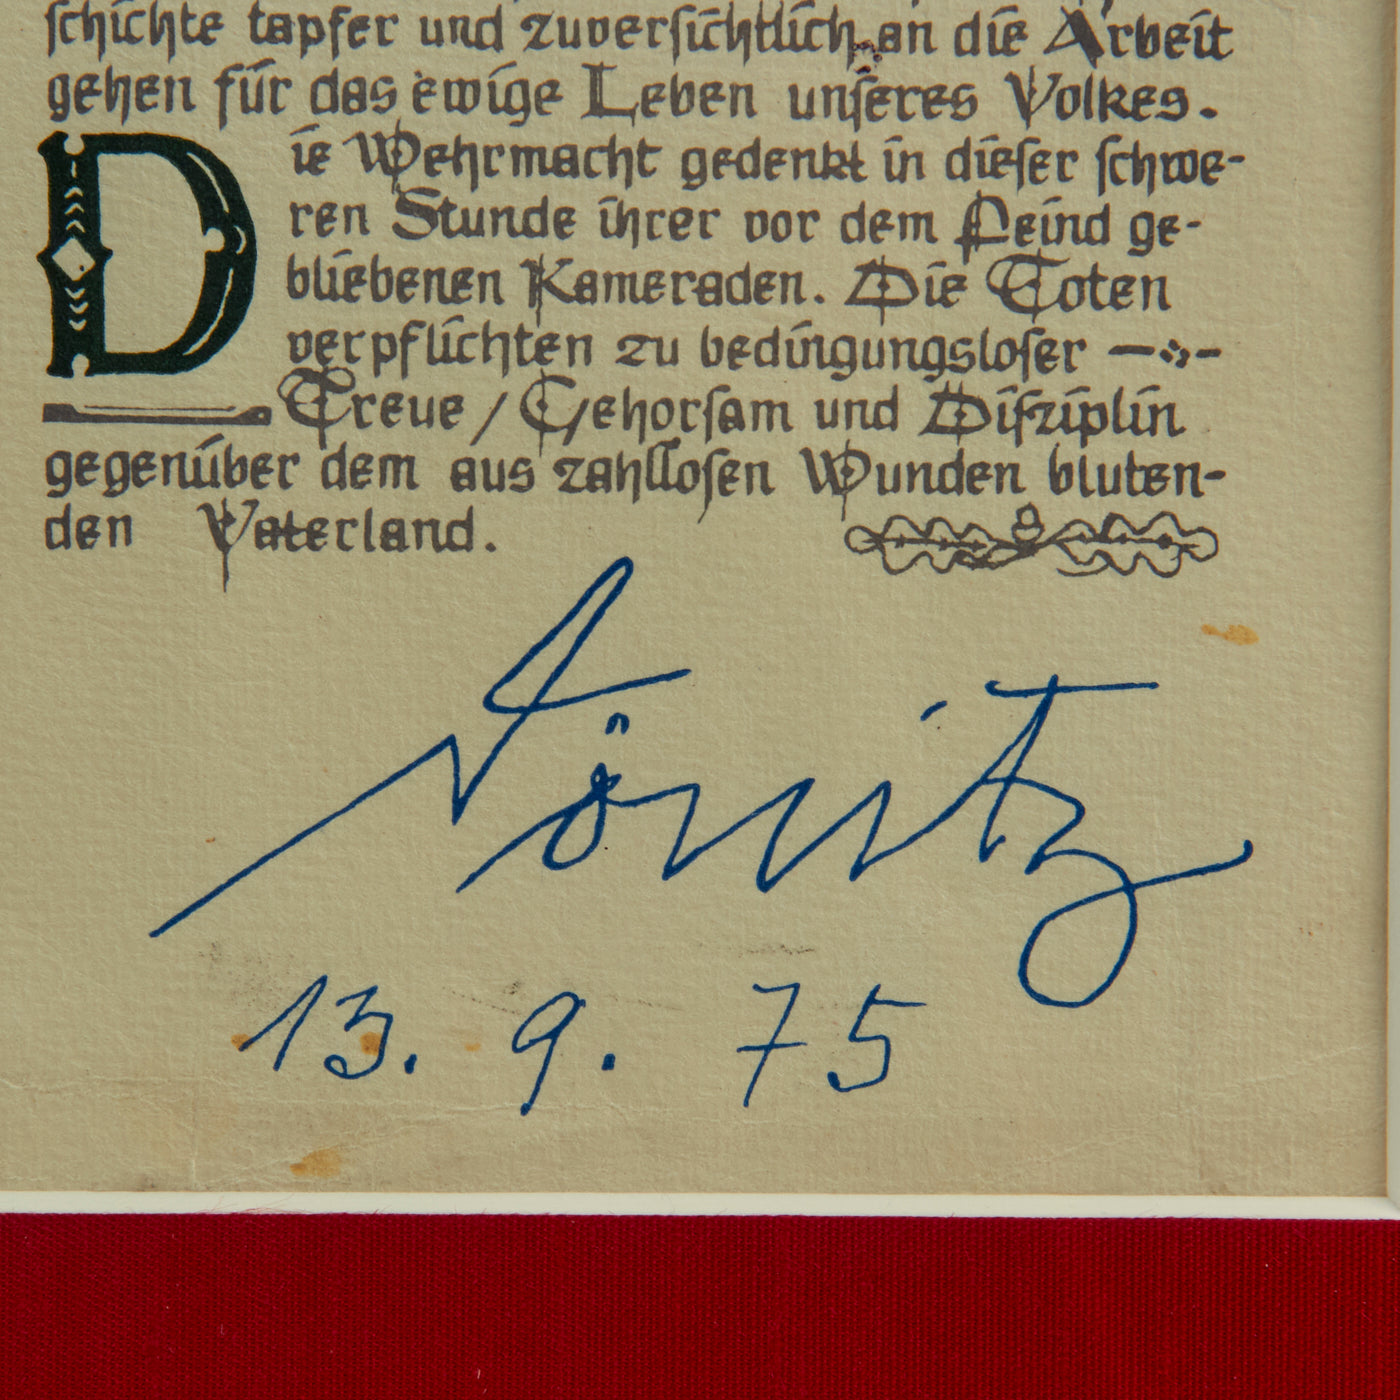 schichte tapfer und zuversichtlich an die Arbeit
gehen für das ewige Leben unseres Volkes.
Die Wehrmacht gedenkt in dieser schwe-
ren Stunde ihrer vor dem Feind ge-
bliebenen Kameraden. Die Toten
verpflichten zu bedingungsloser
Treue / Gehorsam und Disziplin
gegenüber dem aus zahllosen Wunden bluten-
den Vaterland.
Dönitz
13. 9. 75